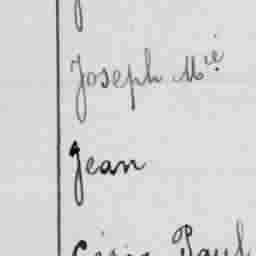 Joseph Mie
Jean
Paul